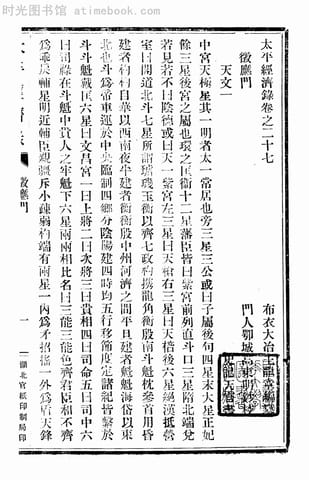 时光图书馆 - atimebook.com
太平經濟錄卷之二十七
布衣大冶王
徵應門
門人鄂城
天文一
中宮天極星其一明者太一常居也旁三星三公或曰子屬後句四星末大星正妃
餘三星後宮之屬也環之匡衛十二星藩臣皆曰紫宮前列直斗口三星隋北端兌
若見若不曰陰德或曰天一紫宮左三星曰天槍右三星曰天棓後六星絕漢抵營
室曰閣道北斗七星所謂璇璣玉衡以齊七政杓攜龍角衡殷南斗魁枕參首用昏
建者杓杓自華以西南夜半建者衡衡殷中州河濟之間平旦建者魁魁海岱以東
北也斗爲帝車運於中央臨制四鄉分陰陽建四時均五行移節度定諸紀皆繫於
斗斗魁戴匡六星曰文昌宮一曰上將二曰次將三曰貴相四曰司命五曰司中六
曰司祿在斗魁中貴人之牢魁下六星兩兩相比名曰三能三能色齊君臣和不齊
爲乖戾輔星明近輔臣親彊斥小疎弱杓端有兩星一內爲矛招搖一外爲盾天鋒
徵應門
一
湖北官紙印制局印